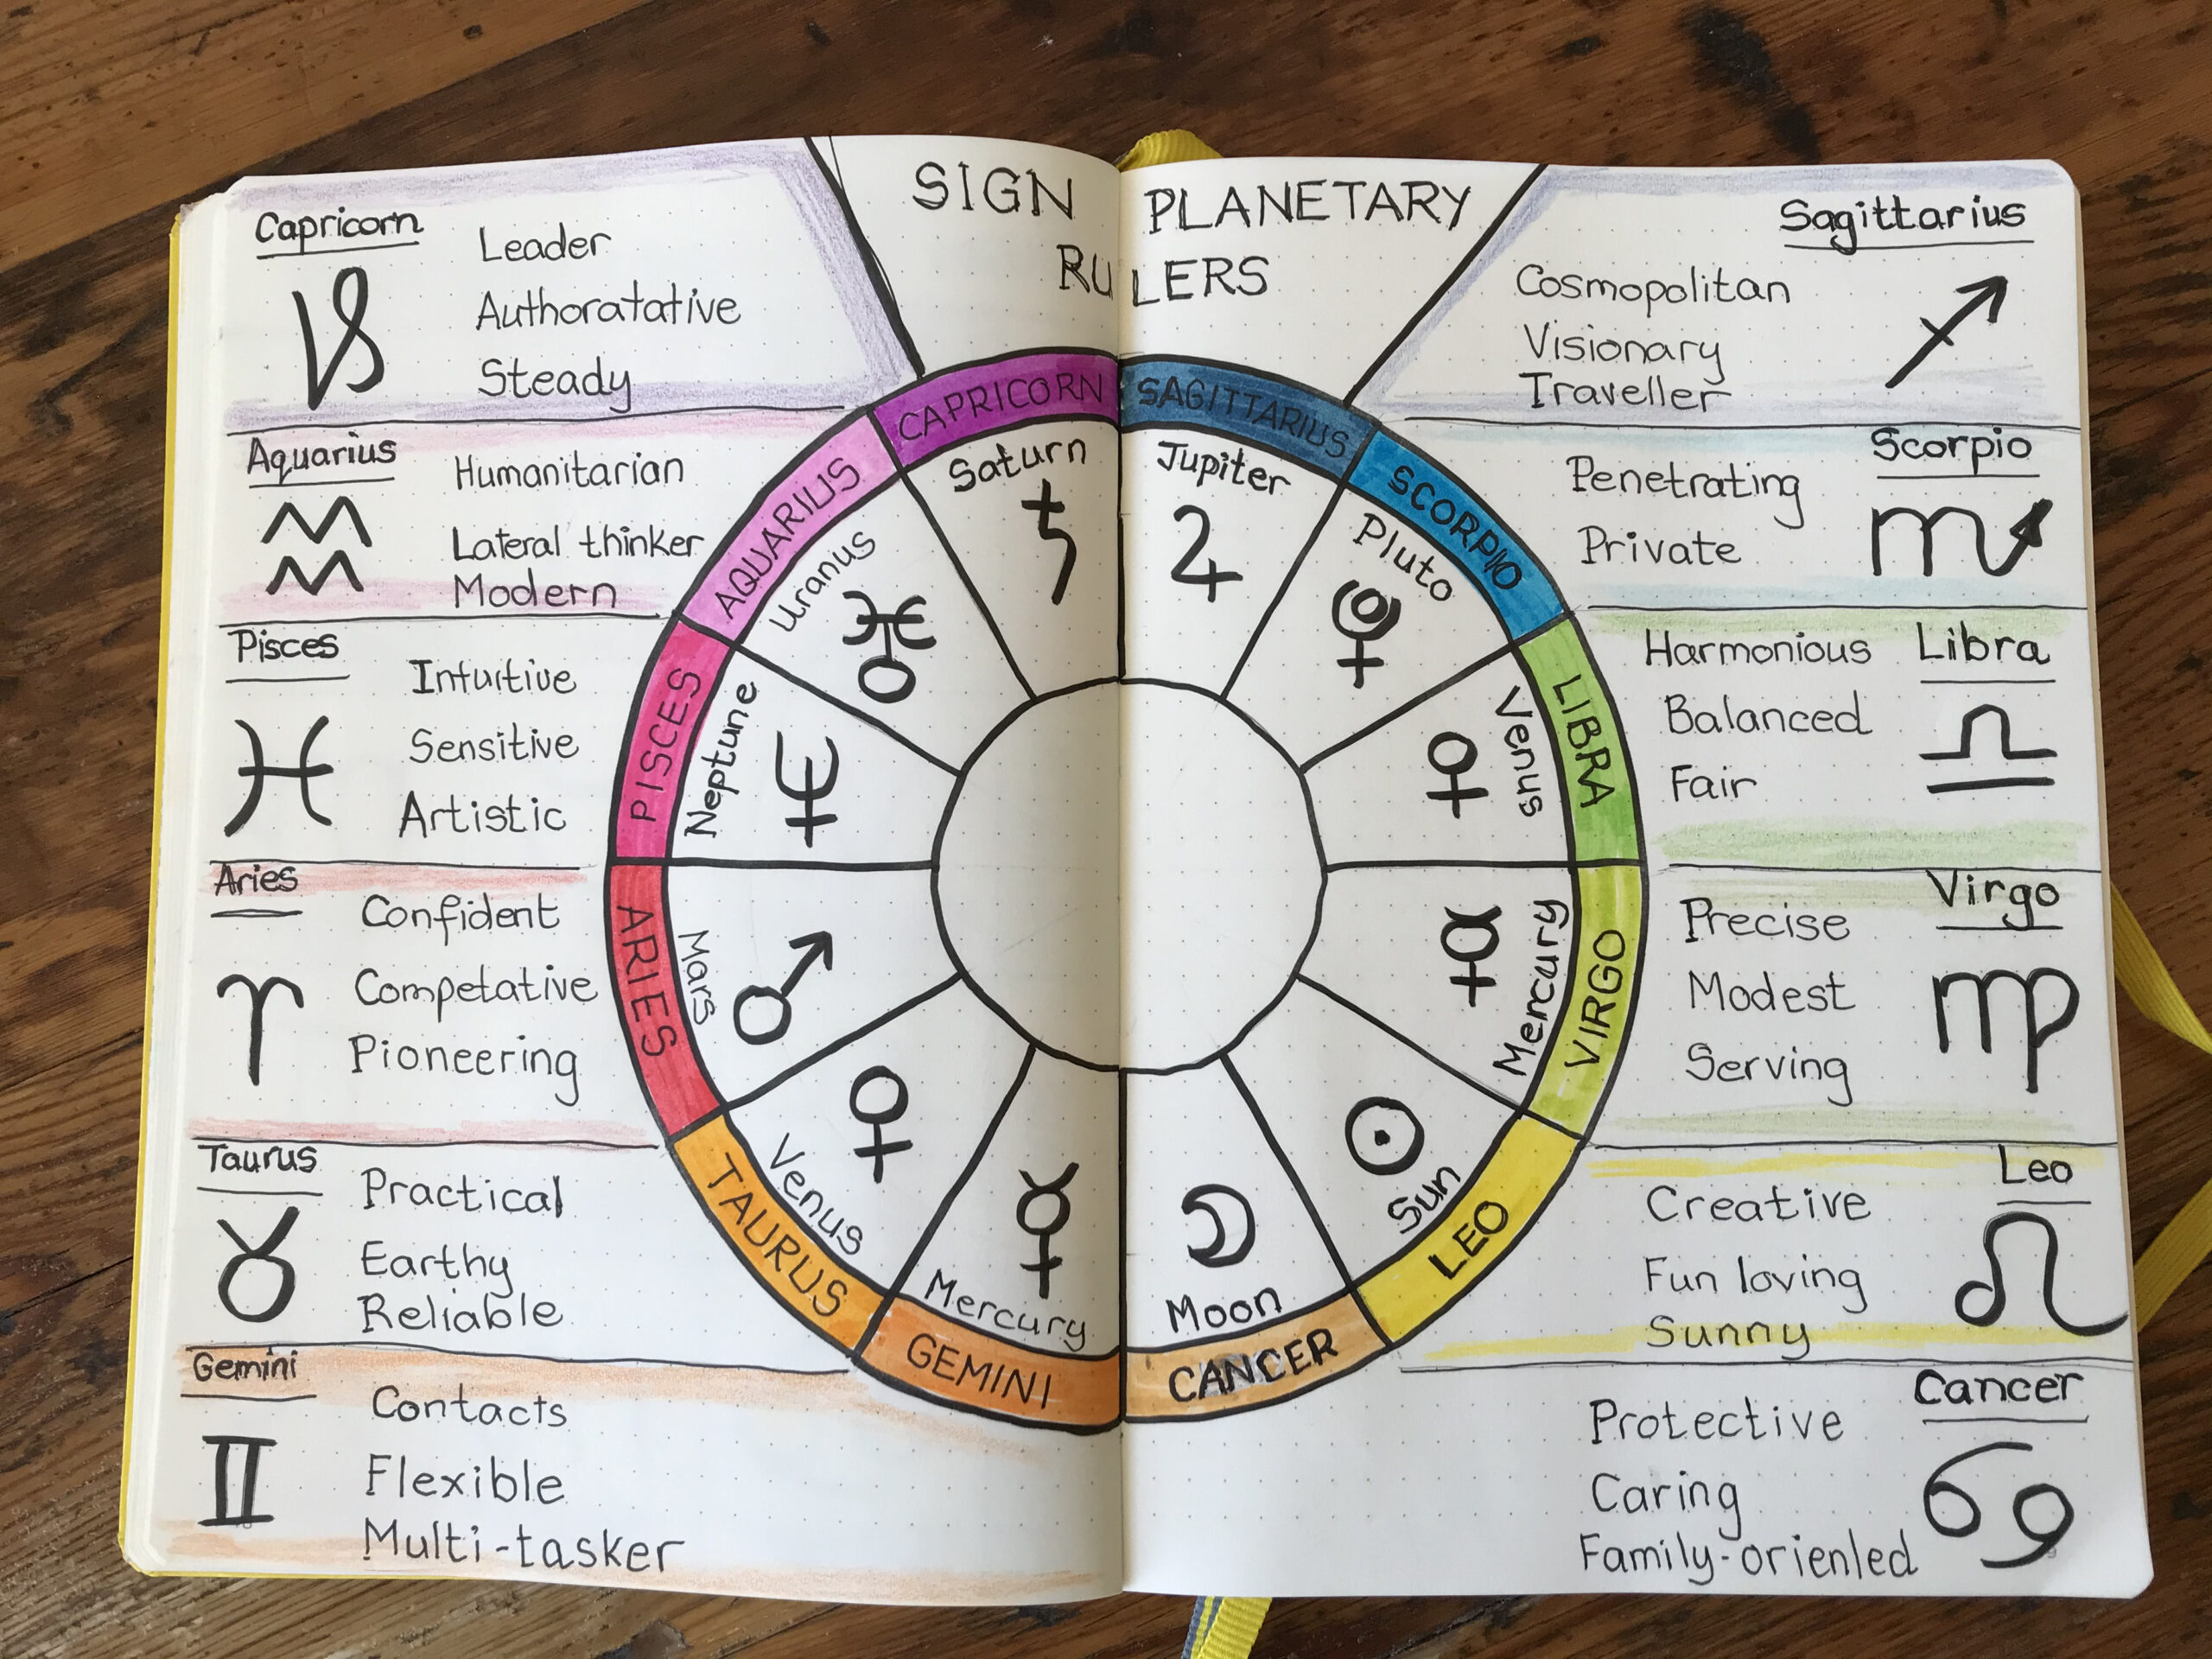 SIGN PLANETARY
RULERS
Capricorn
Leader
Authoratative
Steady
Aquarius
Humanitarian
Lateral thinker
Modern
Pisces
Intuitive
Sensitive
Artistic
Aries
Confident
Competative
Pioneering
Taurus
Practical
Earthy
Reliable
Gemini
Contacts
Flexible
Multi-tasker
CAPRICORN
Saturn
AQUARIUS
Uranus
PISCES
Neptune
ARIES
Mars
TAURUS
Venus
GEMINI
Mercury
CANCER
Moon
LEO
Sun
VIRGO
Mercury
LIBRA
Venus
SCORPIO
Pluto
SAGITTARIUS
Jupiter
Sagittarius
Cosmopolitan
Visionary
Traveller
Scorpio
Penetrating
Private
Libra
Harmonious
Balanced
Fair
Virgo
Precise
Modest
Serving
Leo
Creative
Fun loving
Sunny
Cancer
Protective
Caring
Family-orienled